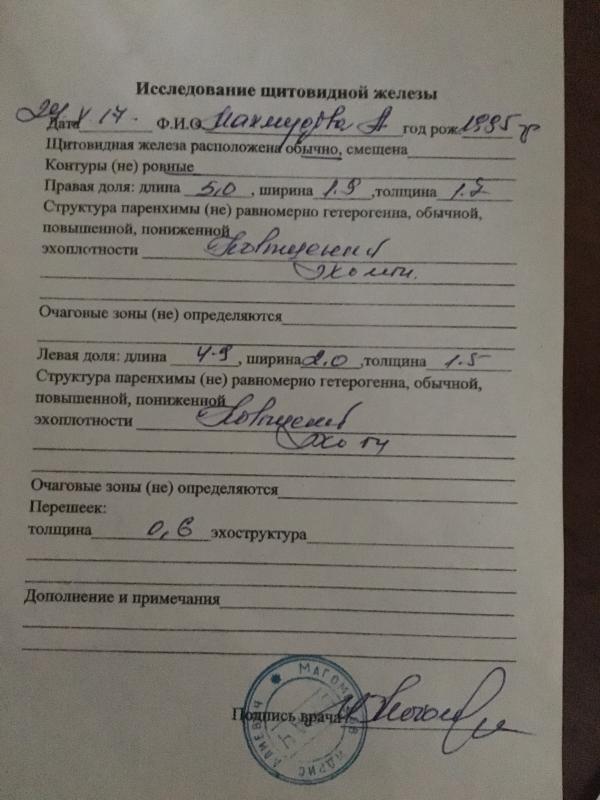 Исследование щитовидной железы
Дата 24 X 17. Ф.И.О Махмудова А год рож. 1995 г
Щитовидная железа расположена обычно, смещена
Контуры (не) ровные
Правая доля: длина 5,0, ширина 1.9, толщина 1.7
Структура паренхимы (не) равномерно гетерогенна, обычной,
повышенной, пониженной
эхоплотности
Очаговые зоны (не) определяются
Левая доля: длина 4.9, ширина 2.0, толщина 1.5
Структура паренхимы (не) равномерно гетерогенна, обычной,
повышенной, пониженной
эхоплотности
Очаговые зоны (не) определяются
Перешеек:
толщина 0,6 эхоструктура
Дополнение и примечания
Подпись врача
МАГОМАЕВ ИДРИС АЛИЕВИЧ